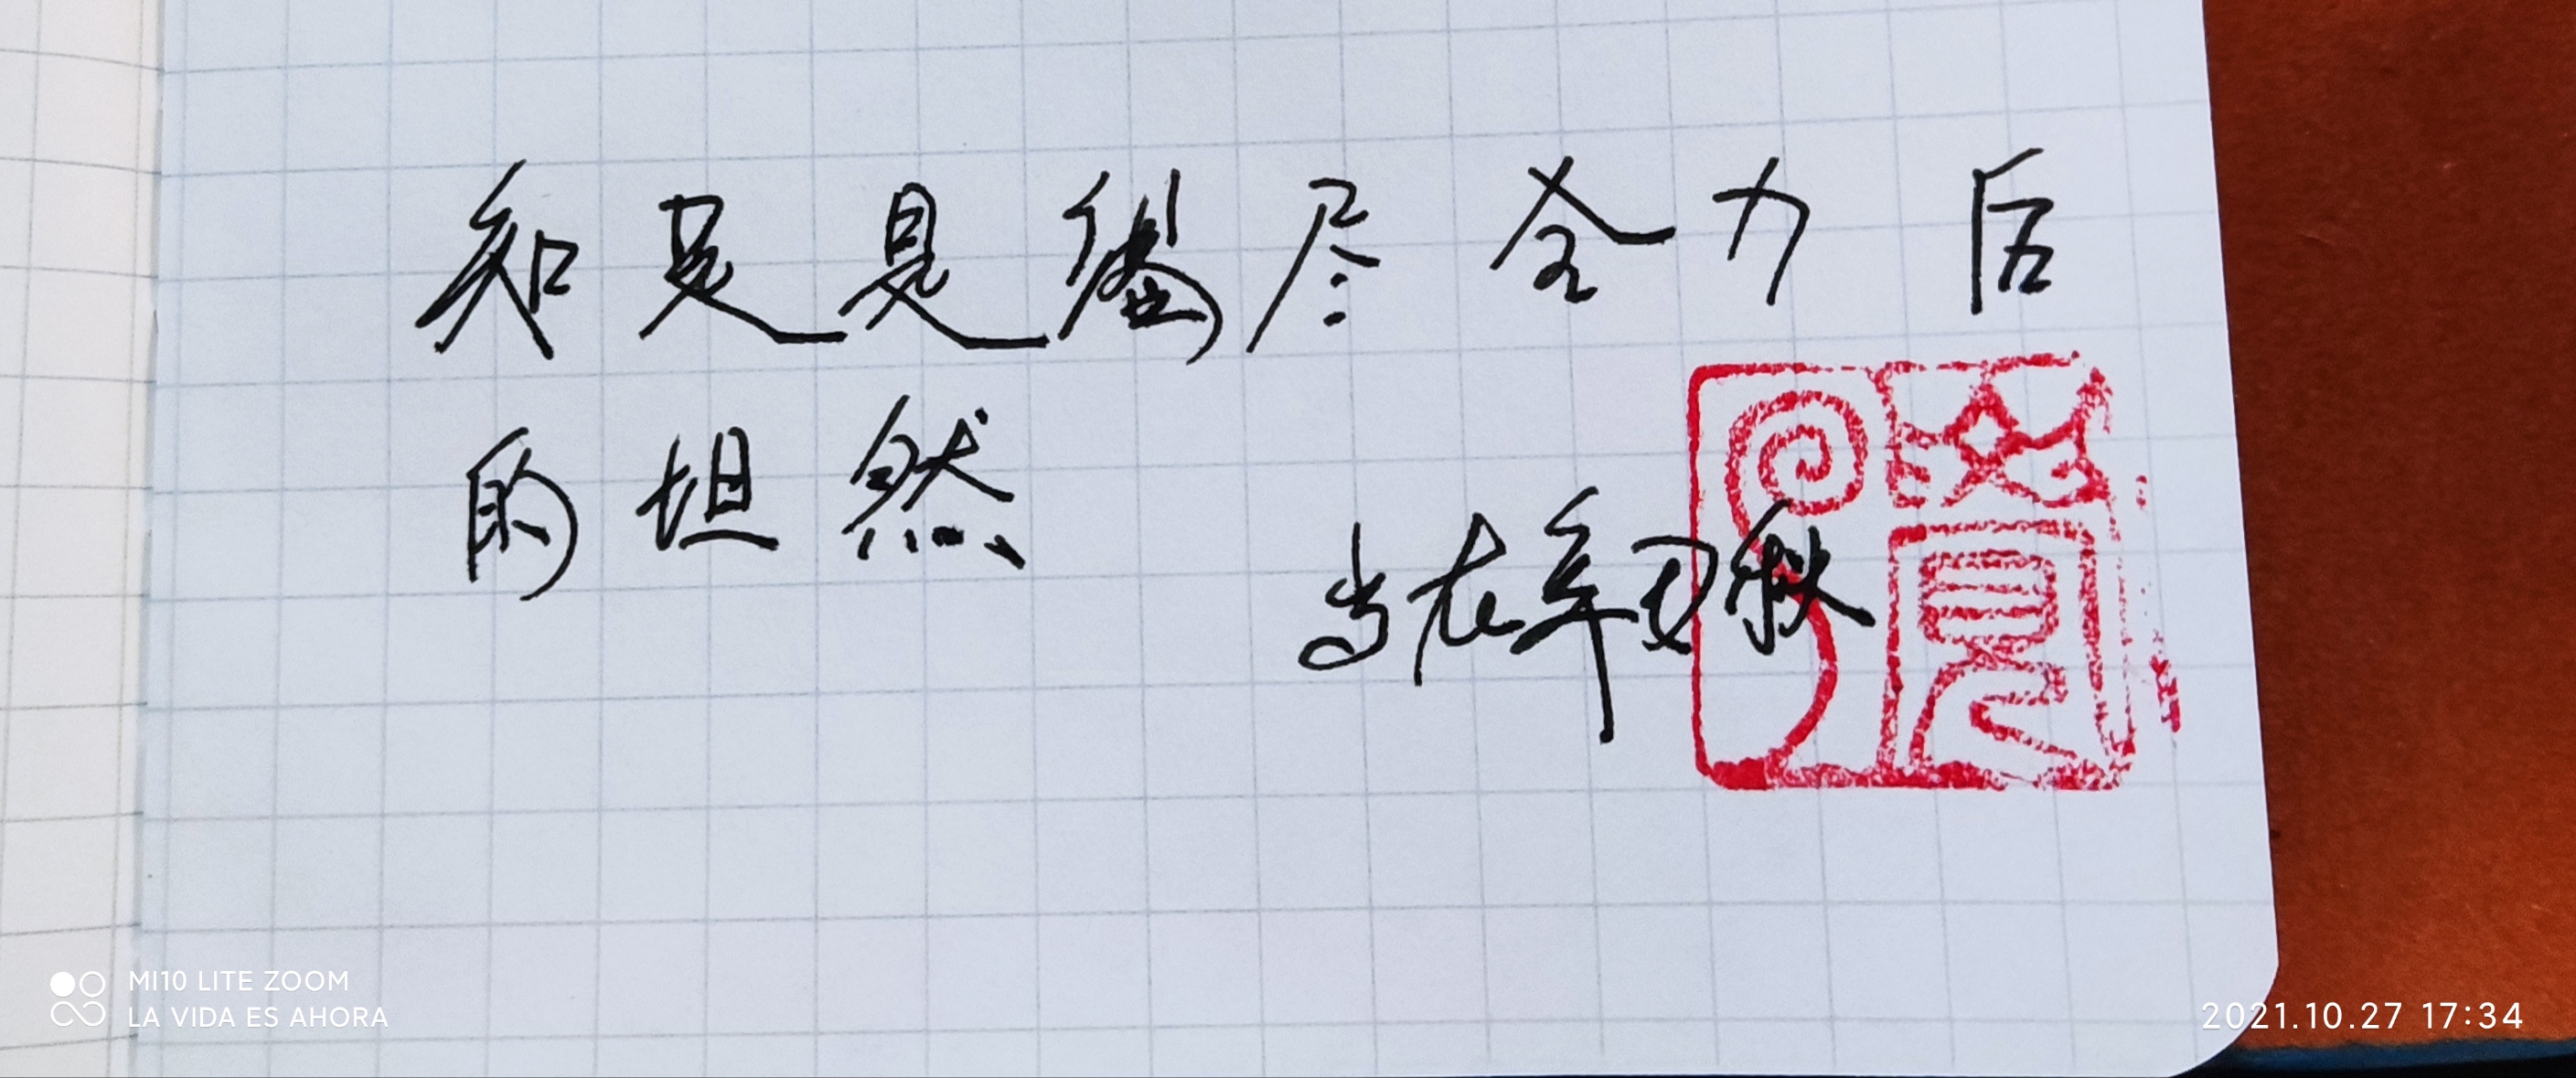 知足是尽全力后
的坦然
当在辛丑秋
MI10 LITE ZOOM
LA VIDA ES AHORA
2021.10.27 17:34